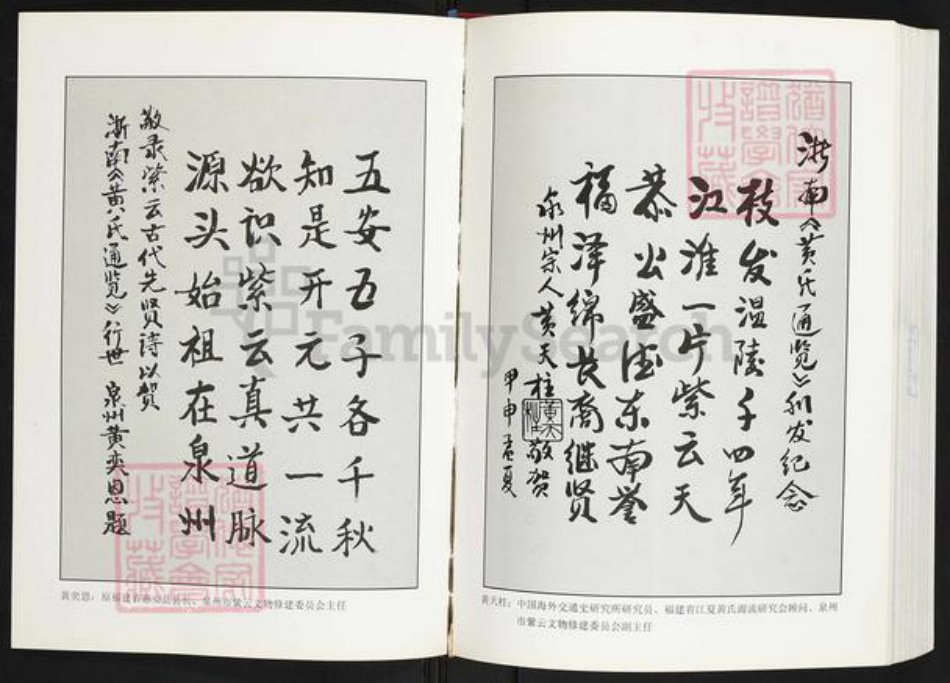 浙南《黄氏通览》刊发纪念
枝发温陵千四年
江淮一片紫云天
恭公盛德东南誉
福泽绵长裔继贤
泉州宗人黄天柱敬贺
甲申孟夏
黄天柱：中国海外交通史研究所研究员、福建省江夏黄氏源流研究会顾问、泉州
市紫云文物修建委员会副主任
五安五子各千秋
知是开元共一流
欲识紫云真道脉
源头始祖在泉州
敬录紫云古代先贤诗以贺
浙南《黄氏通览》行世 泉州黄奕恩题
黄奕恩：原福建省 、泉州市紫云文物修建委员会主任
FamilySearch